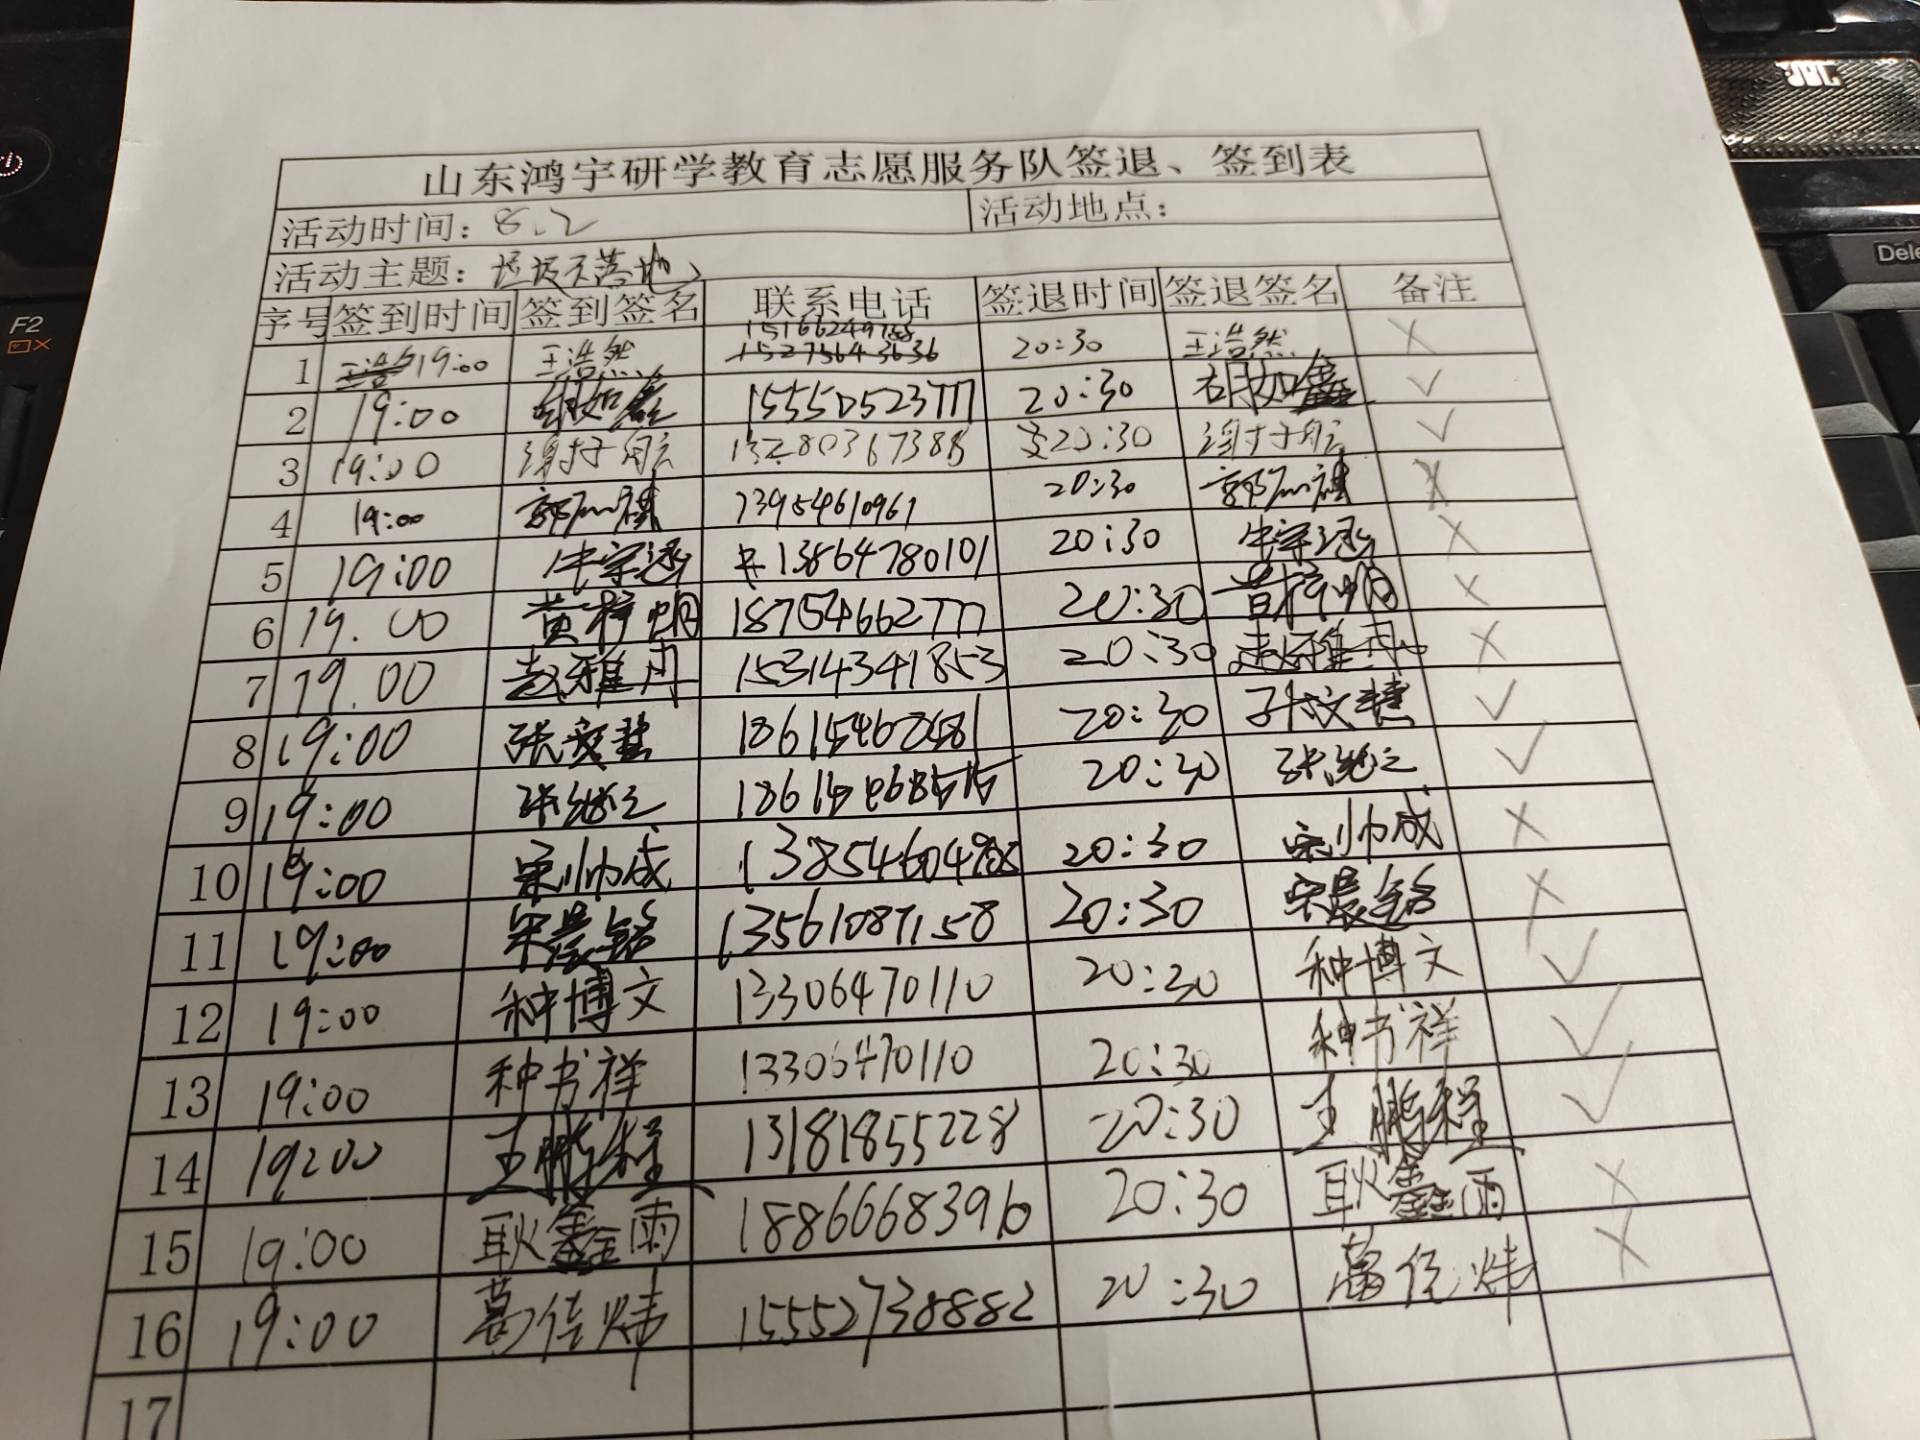 JBL
Dele
F2
山东鸿宇研学教育志愿服务队签退、签到表
活动时间：8.2 活动地点：
活动主题：垃圾不落地
序号 签到时间 签到签名 联系电话 签退时间 签退签名 备注
1 19:00 王浩然 20:30 王浩然 ×
2 19:00 胡如鑫 15550523777 20:30 胡如鑫 ✓
3 19:00 谢于航 13280367388 20:30 谢于航 ✓
4 19:00 13954610961 20:30 ×
5 19:00 牛宇涵 13864780101 20:30 牛宇涵 ×
6 19.00 黄梓 18754662777 20:30 黄梓 ×
7 19.00 赵雅丹 15314341853 20:30 赵雅丹 ×
8 19:00 20:30 孙文慧 ✓
9 19:00 20:30 ✓
10 19:00 宋帅成 20:30 宋帅成 ×
11 19:00 宋晨铭 13561087158 20:30 宋晨铭 ×
12 19:00 种博文 13306470110 20:30 种博文 ✓
13 19:00 种书祥 13306470110 20:30 种书祥 ✓
14 19:00 王鹏程 13181855228 20:30 王鹏程 ✓
15 19:00 耿鑫雨 1886668396 20:30 耿鑫雨 ×
16 19:00 葛佳炜 15552738882 20:30 葛佳炜 ×
17